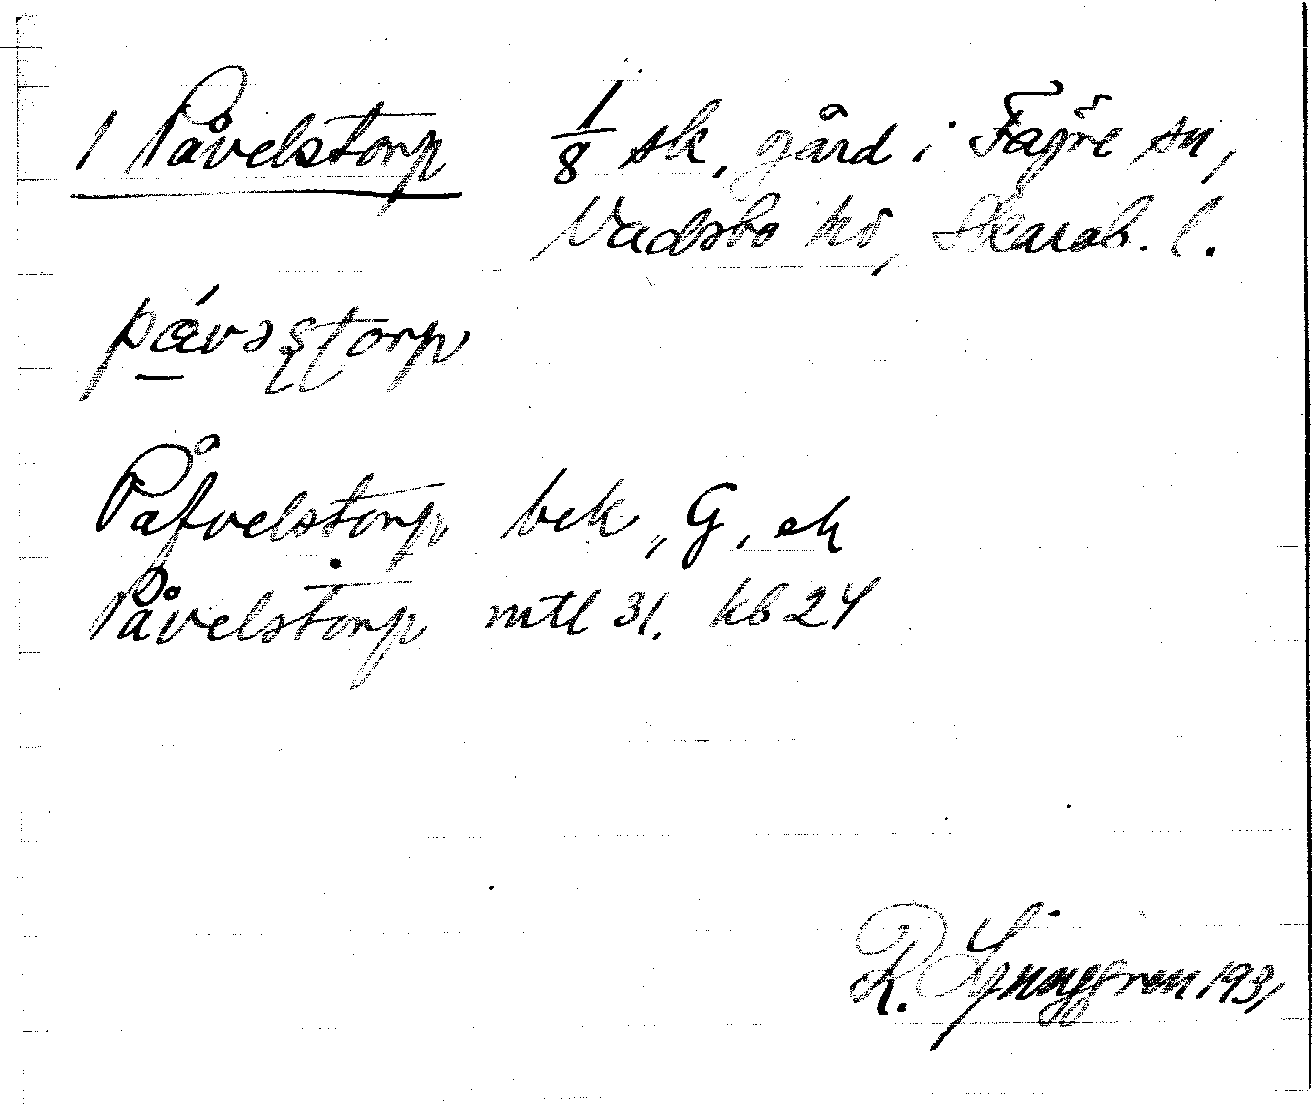 1 Påvelstorp 1/8 sk, gård i Fägre sn,
Vadsbo hd, Skarab. l.
Påfvelstorp bek, G, ek
Påvelstorp mtl 31. kb 24
R. Ljunggren 1931